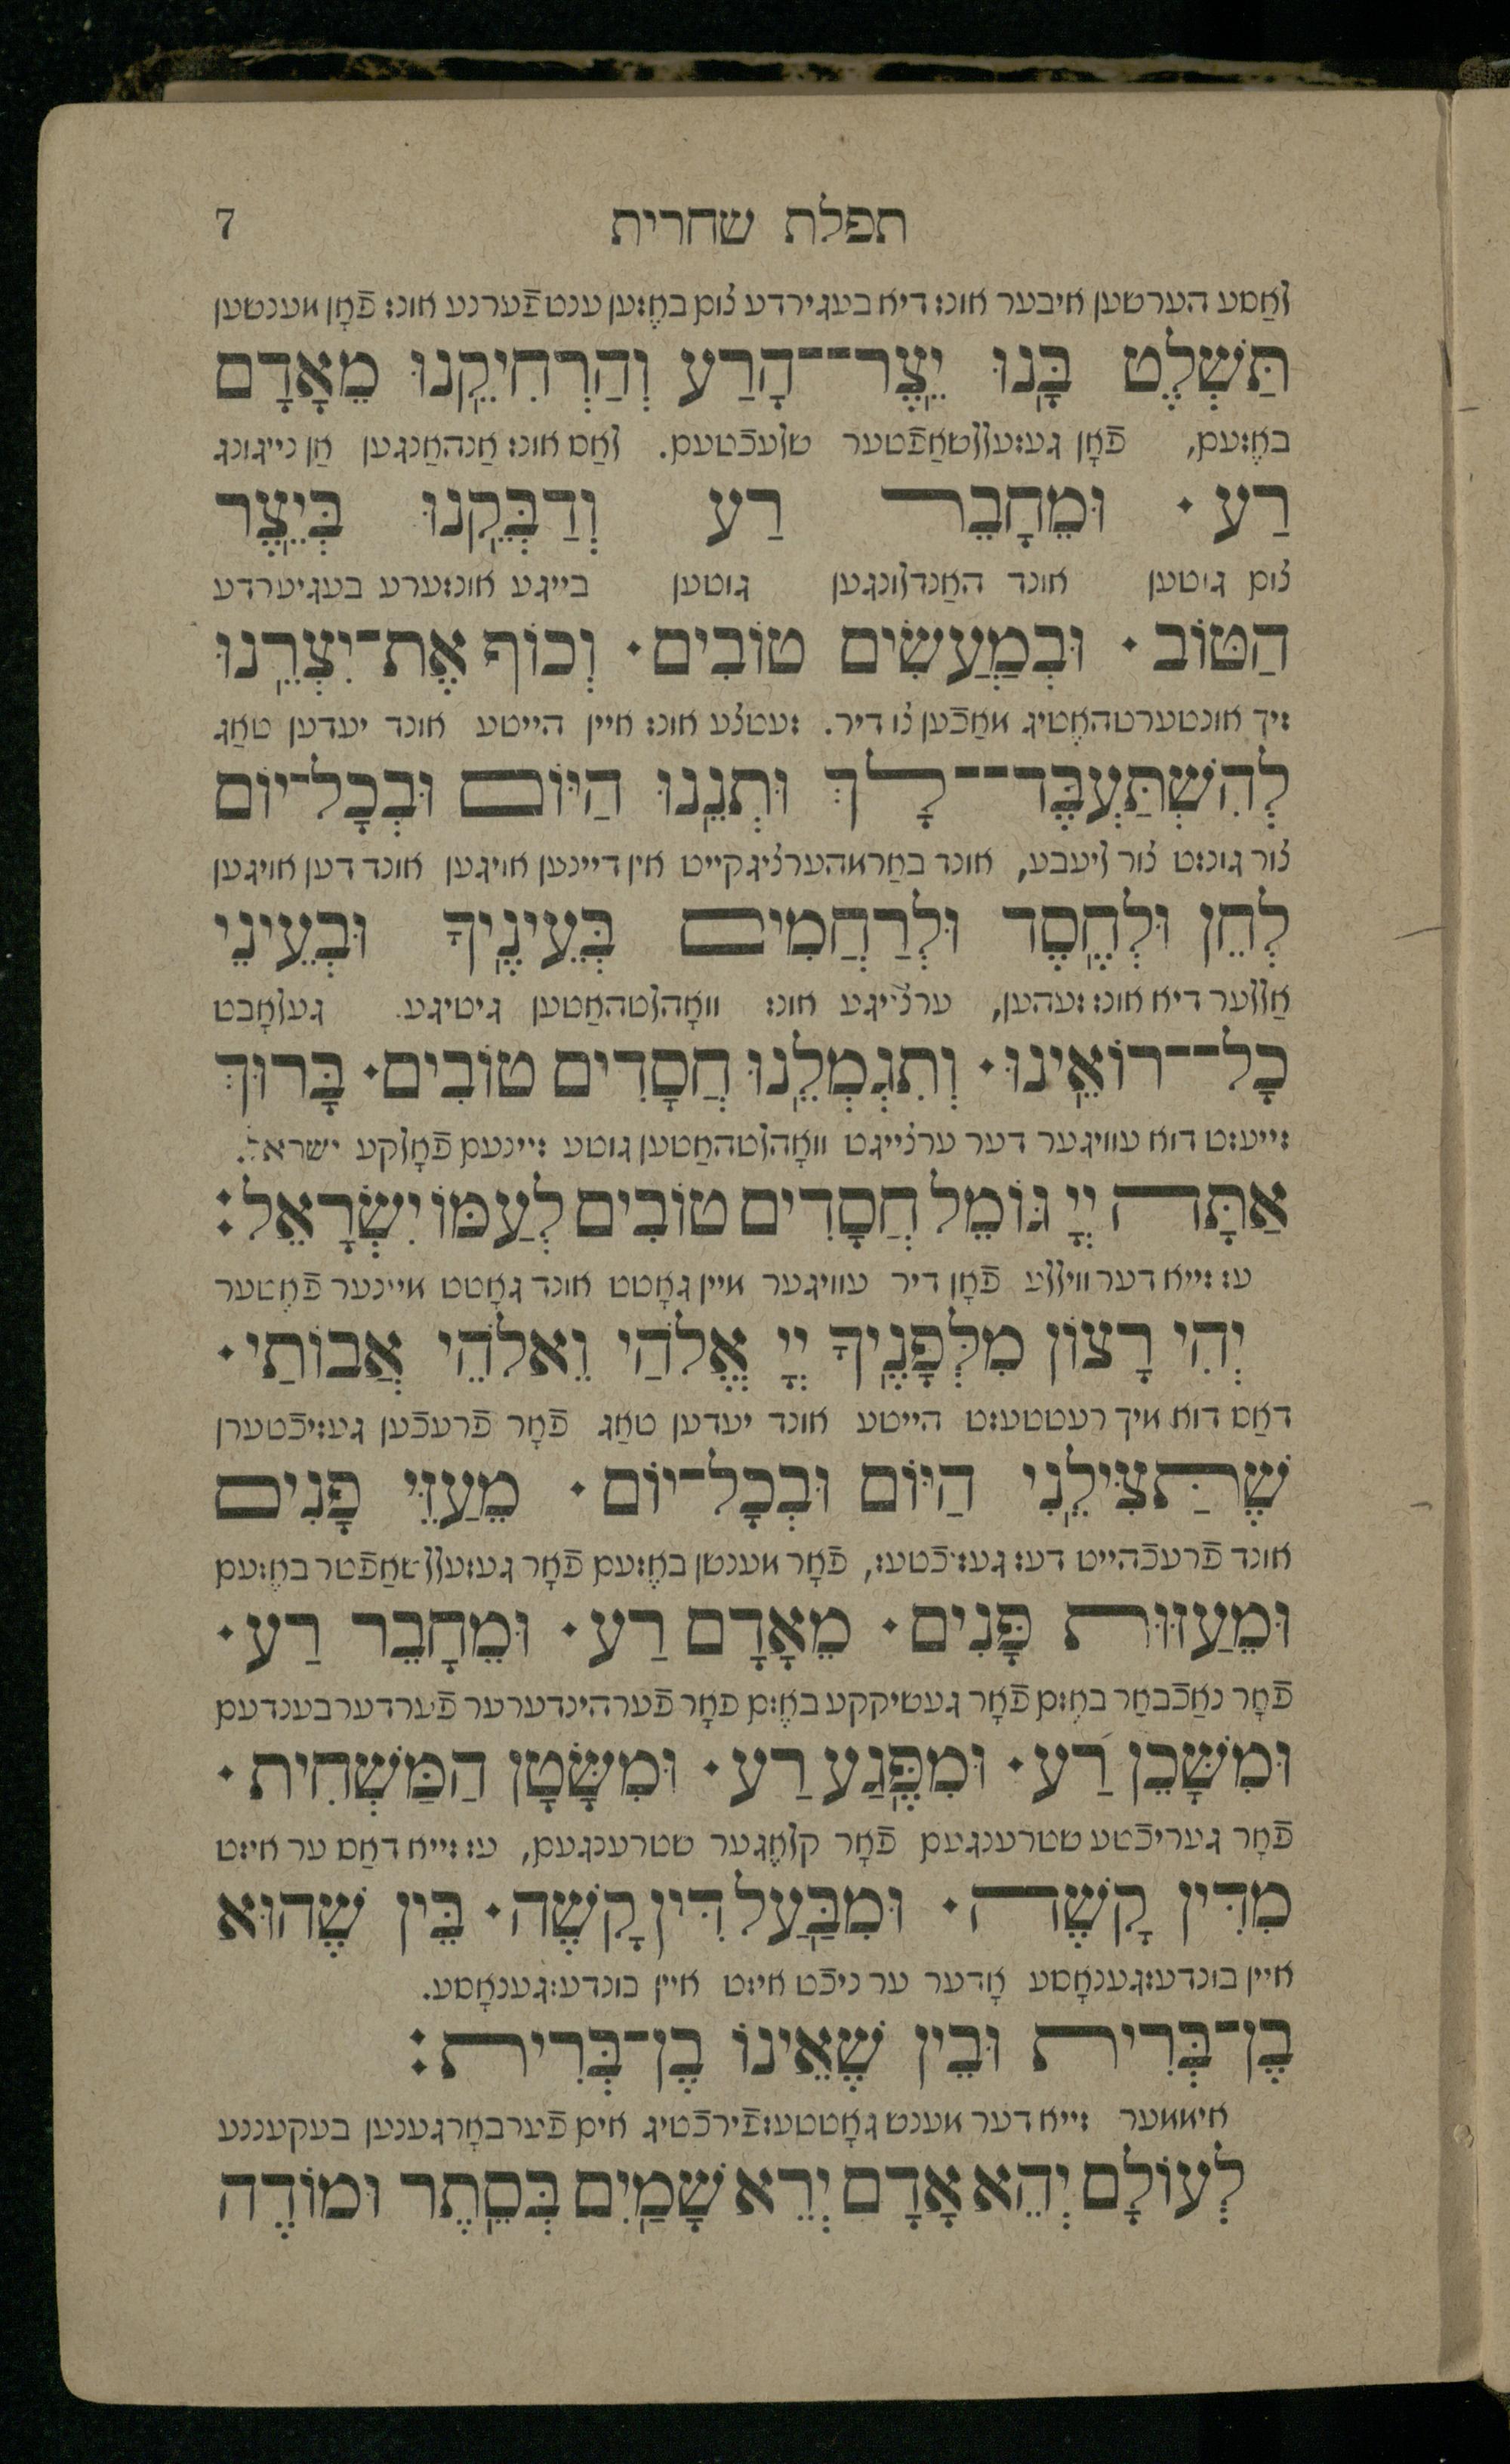 תפלת שחרית 7
לאַסע הערשען איבער אונז דיא בעגירדע צום באֶזען ענטפֿערנע אונז פֿאָן מענשען
תַּשְׁלֶט בָּנוּ יֵצֶר־־הָרַע וְהַרְחִיקֵנוּ מֵאָדָם
באֶזעם, פֿאָן געזעללשאַפֿטער שלעכֿטעם. לאַס אונז אַנהאַנגען אַן נייגונג
רַע · וּמֵחָבֵר רַע וְדַבְּקֵנוּ בְּיֵצֶר
צום גוטען אונד האַנדלונגען גוטען בייגע אונזערע בעגיערדע
הַטּוֹב · וּבְמַעֲשִׂים טוֹבִים · וְכוֹף אֶת־יִצְרֵנוּ
זיך אונטערטהאֶטיג מאַכֿען צו דיר. זעטצע אונז איין הייטע אונד יעדען טאַג
לְהִשְׁתַּעְבֶּד־־לָךְ וּתְנֵנוּ הַיּוֹם וּבְכָל־יוֹם
צור גונזט צור ליעבע, אונד באַרמהערציגקייט אין דיינען אויגען אונד דען אויגען
לְחֵן וּלְחֶסֶד וּלְרַחֲמִים בְּעֵינֶיךָ וּבְעֵינֵי
אַללער דיא אונז זעהען, ערצייגע אונז וואָהלטהאַטען גיטיגע. געלאָבט
כָל־־רוֹאֵינוּ · וְתִגְמְלֵנוּ חֲסָדִים טוֹבִים · בָּרוּךְ
זייעזט דוא עוויגער דער ערצייגט וואָהלטהאַטען גוטע זיינעם פֿאָלקע ישראל.
אַתָּה יְיָ גּוֹמֵל חֲסָדִים טוֹבִים לְעַמּוֹ יִשְׂרָאֵל :
עז זייא דער ווילללע פֿאָן דיר עוויגער מיין גאָטט אונד גאָטט מיינער פֿאֶטער
יְהִי רָצוֹן מִלְּפָנֶיךָ יְיָ אֱלֹהַי וֵאלֹהֵי אֲבוֹתַי ·
דאַס דוא מיך רעטטעזט הייטע אונד יעדען טאַג פֿאָר פֿרעכֿען געזיכֿטערן
שֶׁתַּצִּילֵנִי הַיּוֹם וּבְכָל־יוֹם · מֵעַזֵּי פָנִים
אונד פֿרעכֿהייט דעז געזיכֿטעז, פֿאָר מענשן באֶזעם פֿאָר געזעללשאַפֿטר באֶזעם
וּמֵעַזּוּת פָּנִים · מֵאָדָם רַע · וּמֵחָבֵר רַע ·
פֿאָר נאַכֿבאַר באֶזם פֿאָר געשיקקע באֶזם פאָר פֿערהינדערער פֿערדערבענדעם
וּמִשָּׁכֵן רַע · וּמִפֶּגַע רַע · וּמִשָּׂטָן הַמַּשְׁחִית ·
פֿאָר געריכֿטע שטרענגעם פֿאָר קלאֶגער שטרענגעם, עז זייא דאַס ער איזט
מִדִּין קָשֶׁה · וּמִבַּעַל דִּין קָשֶׁה · בֵּין שֶׁהוּא
איין בונדעזגענאָסע אָדער ער ניכֿט איזט איין בונדעזגענאָסע.
בֶן־בְּרִית וּבֵין שֶׁאֵינוֹ בֶן־בְּרִית :
איממער זייא דער מענש גאָטטעזפֿירכֿטיג אים פֿערבאָרגענען בעקעננע
לְעוֹלָם יְהֵא אָדָם יְרֵא שָׁמַיִם בְּסֵתֶר וּמוֹדֶה